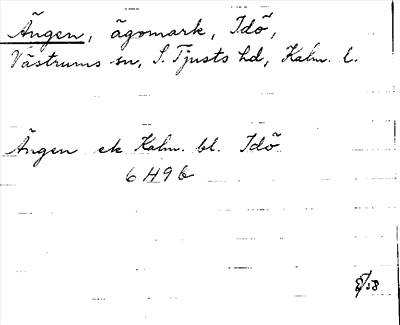 Ängen, ägomark, Idö,
Västrums sn, S. Tjusts hd, Kalm. l.
Ängen ek Kalm. bl. Idö
6H9b